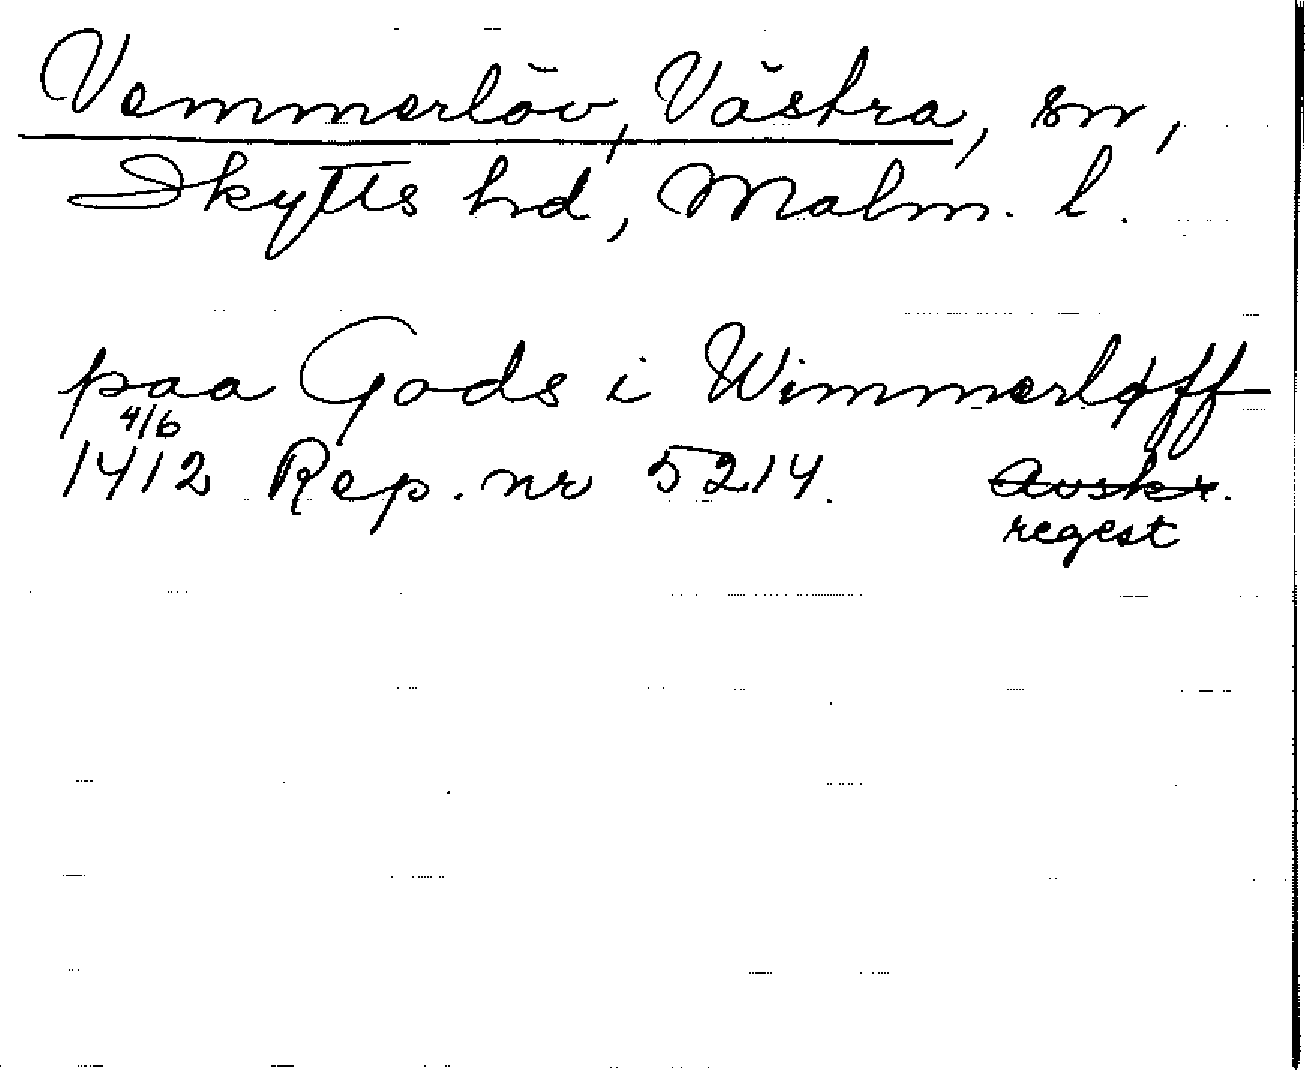 Vemmerlöv, Västra, sn,
Skytts hd, Malm. l.
paa Gods i Wimmerløff
4/6
1412 Rep. nr 5214. Avskr.
regest